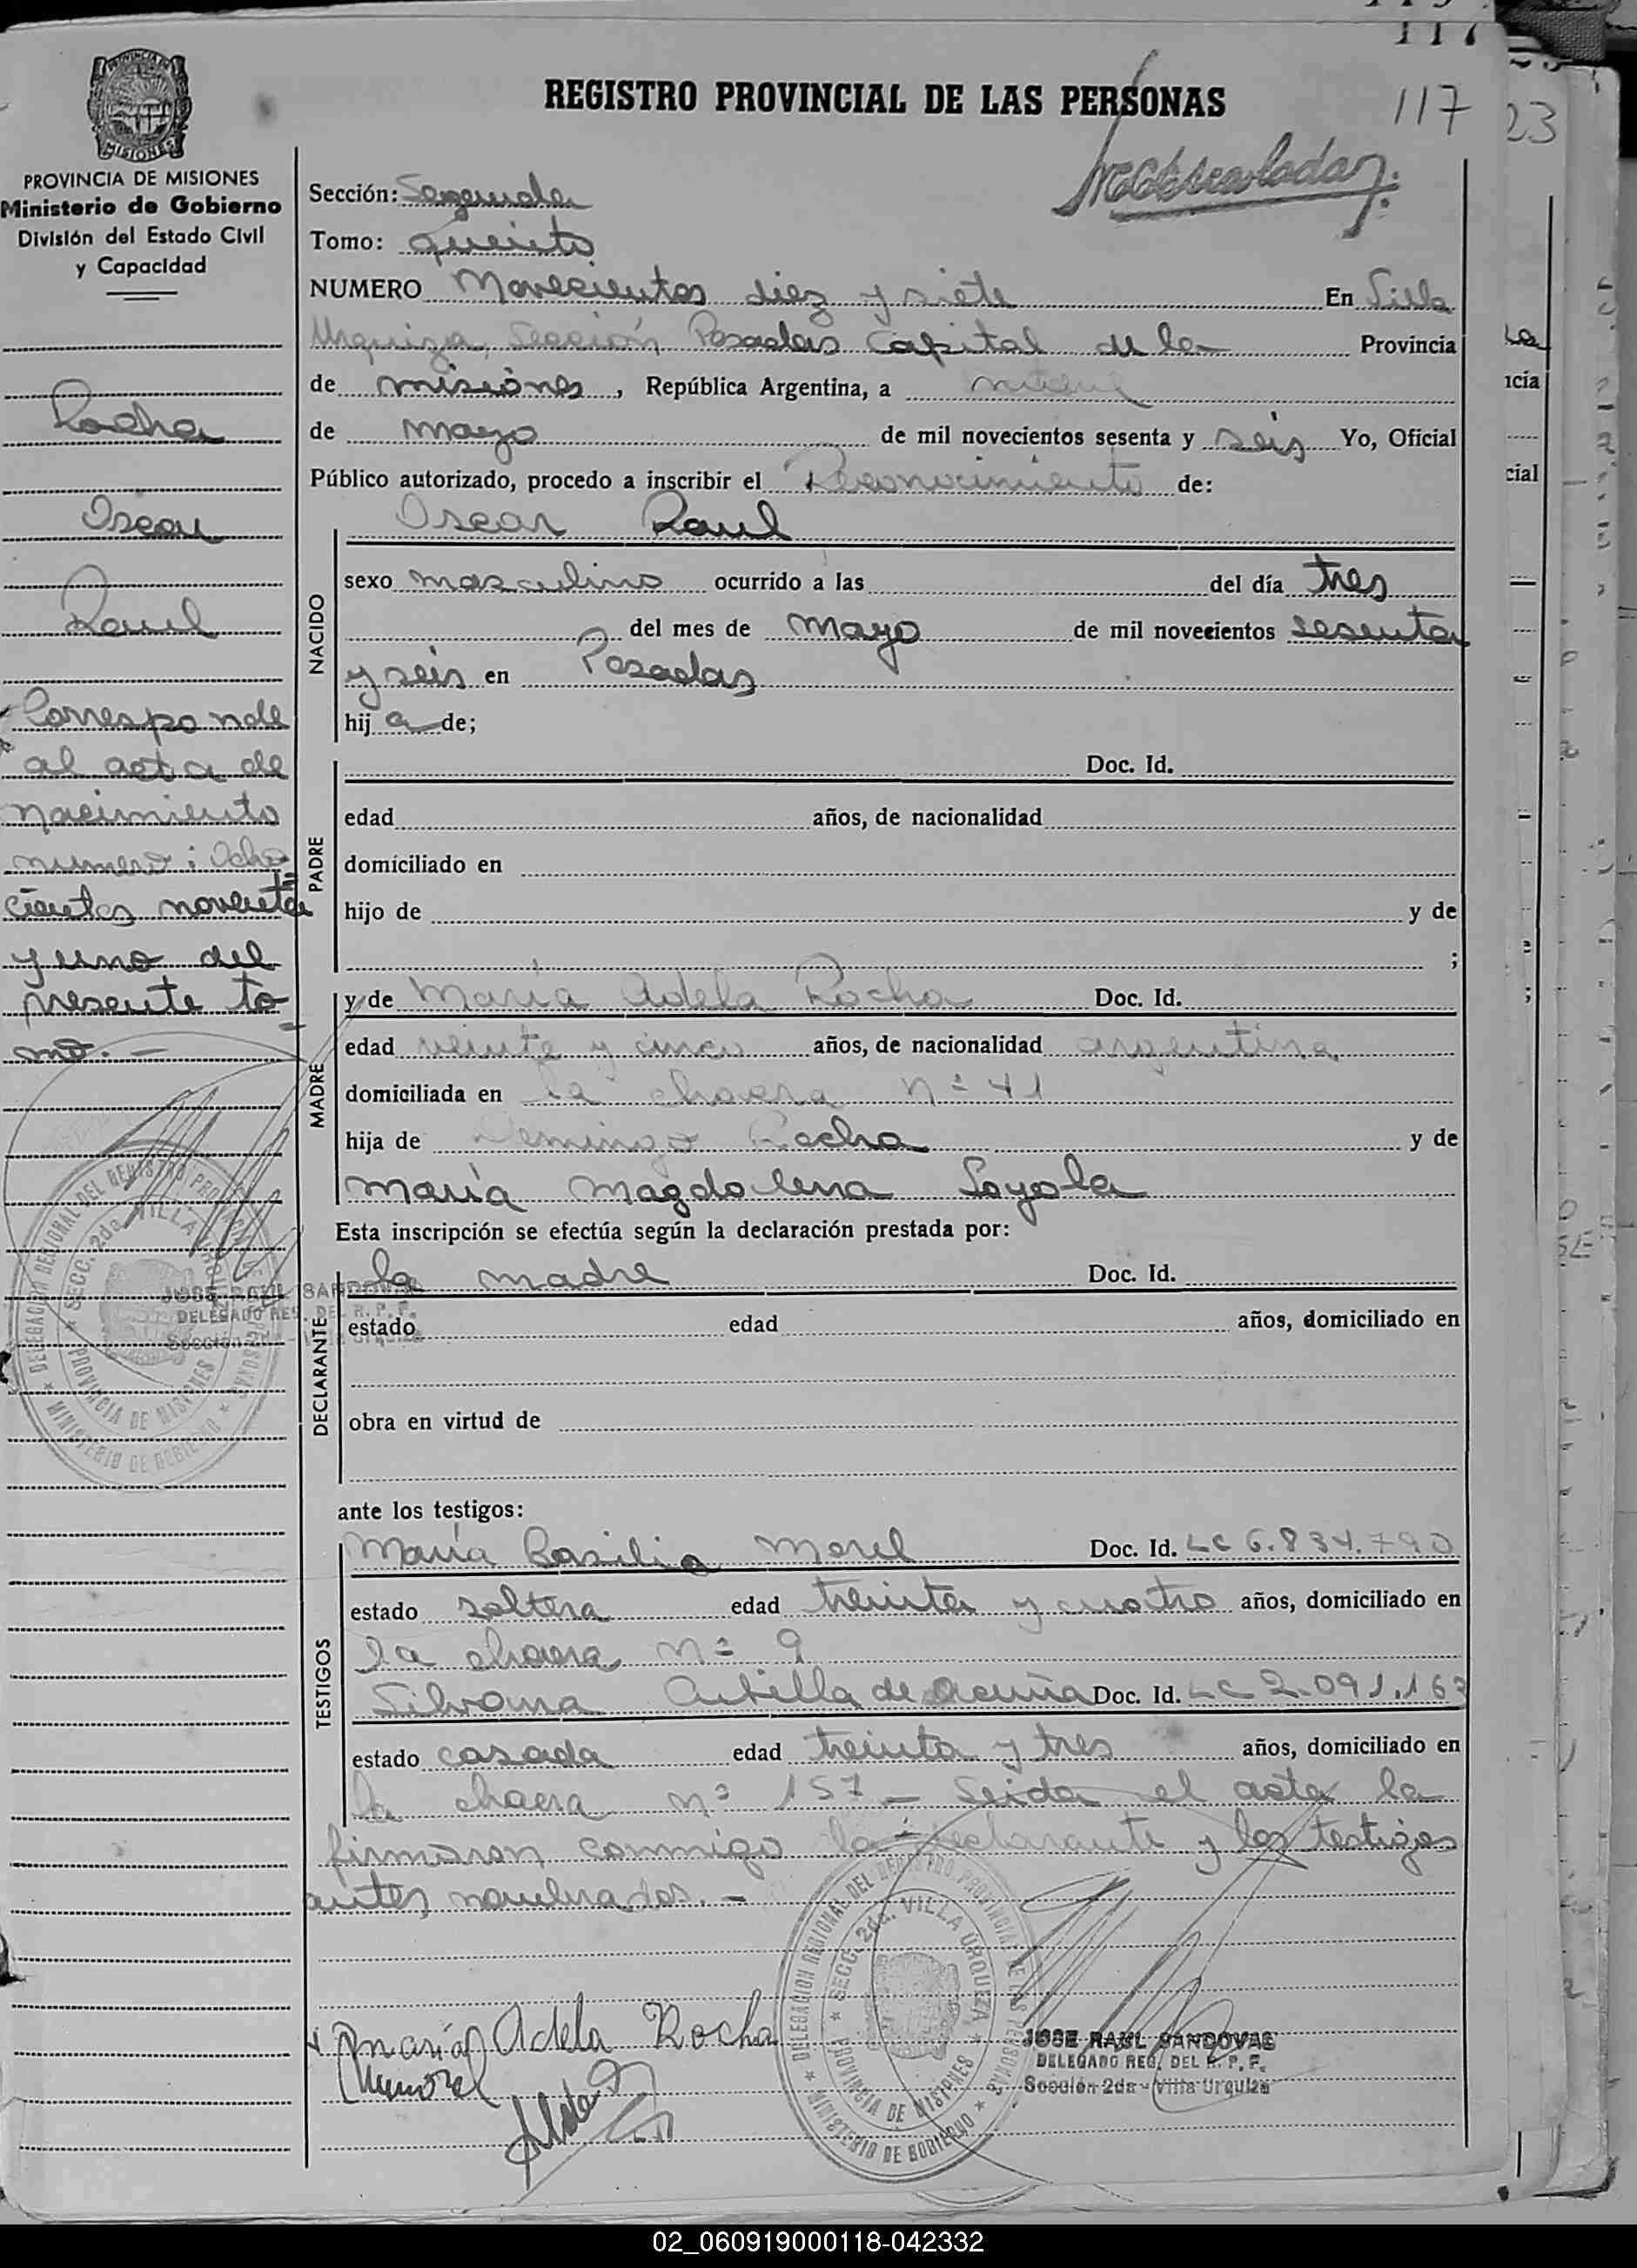 117
REGISTRO PROVINCIAL DE LAS PERSONAS
117
23
MISIONES
PROVINCIA DE MISIONES
Ministerio de Gobierno
División del Estado Civil
y Capacidad
Rocha
Oscar
Raul
Corresponde
al acta de
nacimiento
numero: Ocho
cientos noventa
y uno del
presente to-
mo. -
Sección: Segunda
Tomo: Quinto
NUMERO Novecientos diez y siete En Villa
Urquiza, Sección Posadas Capital de la Provincia
de misiones, República Argentina, a
de mayo de mil novecientos sesenta y seis Yo, Oficial
Público autorizado, procedo a inscribir el Reconocimiento de:
Oscar Raul
NACIDO
sexo masculino ocurrido a las del día tres
del mes de mayo de mil novecientos sesenta
y seis en Posadas
hij a de;
PADRE
Doc. Id.
edad años, de nacionalidad
domiciliado en
hijo de y de
;
MADRE
y de María Adela Rocha Doc. Id.
edad veinte y cinco años, de nacionalidad argentina
domiciliada en la chacra nº 41
hija de Domingo Rocha y de
maría magdalena Loyola
Esta inscripción se efectúa según la declaración prestada por:
DECLARANTE
la madre Doc. Id.
estado edad años, domiciliado en
obra en virtud de
ante los testigos:
TESTIGOS
María Basilia Morel Doc. Id. LC 6.834.790
estado soltera edad treinta y cuatro años, domiciliado en
la chacra nº 9
Silvana de Acuña Doc. Id. LC 2.091.163
estado casada edad treinta y tres años, domiciliado en
la chacra nº 157 - Leida el acta la
firmaron conmigo la declarante y los testigos
antes nombrados. -
María Adela Rocha
DELEGACION REGIONAL DEL REGISTRO PROVINCIAL DE LAS PERSONAS
SECC. 2da. VILLA URQUIZA
PROVINCIA DE MISIONES
MINISTERIO DE GOBIERNO
JOSE RAUL SANDOVAL
DELEGADO REG. DEL R. P. P.
Sección 2da - Villa Urquiza
DELEGACION REGIONAL DEL REGISTRO PROVINCIAL DE LAS PERSONAS
SECC. 2da. VILLA URQUIZA
PROVINCIA DE MISIONES
MINISTERIO DE GOBIERNO
JOSE RAUL SANDOVAL
DELEGADO REG. DEL R. P. P.
Sección 2da - Villa Urquiza
02_060919000118-042332